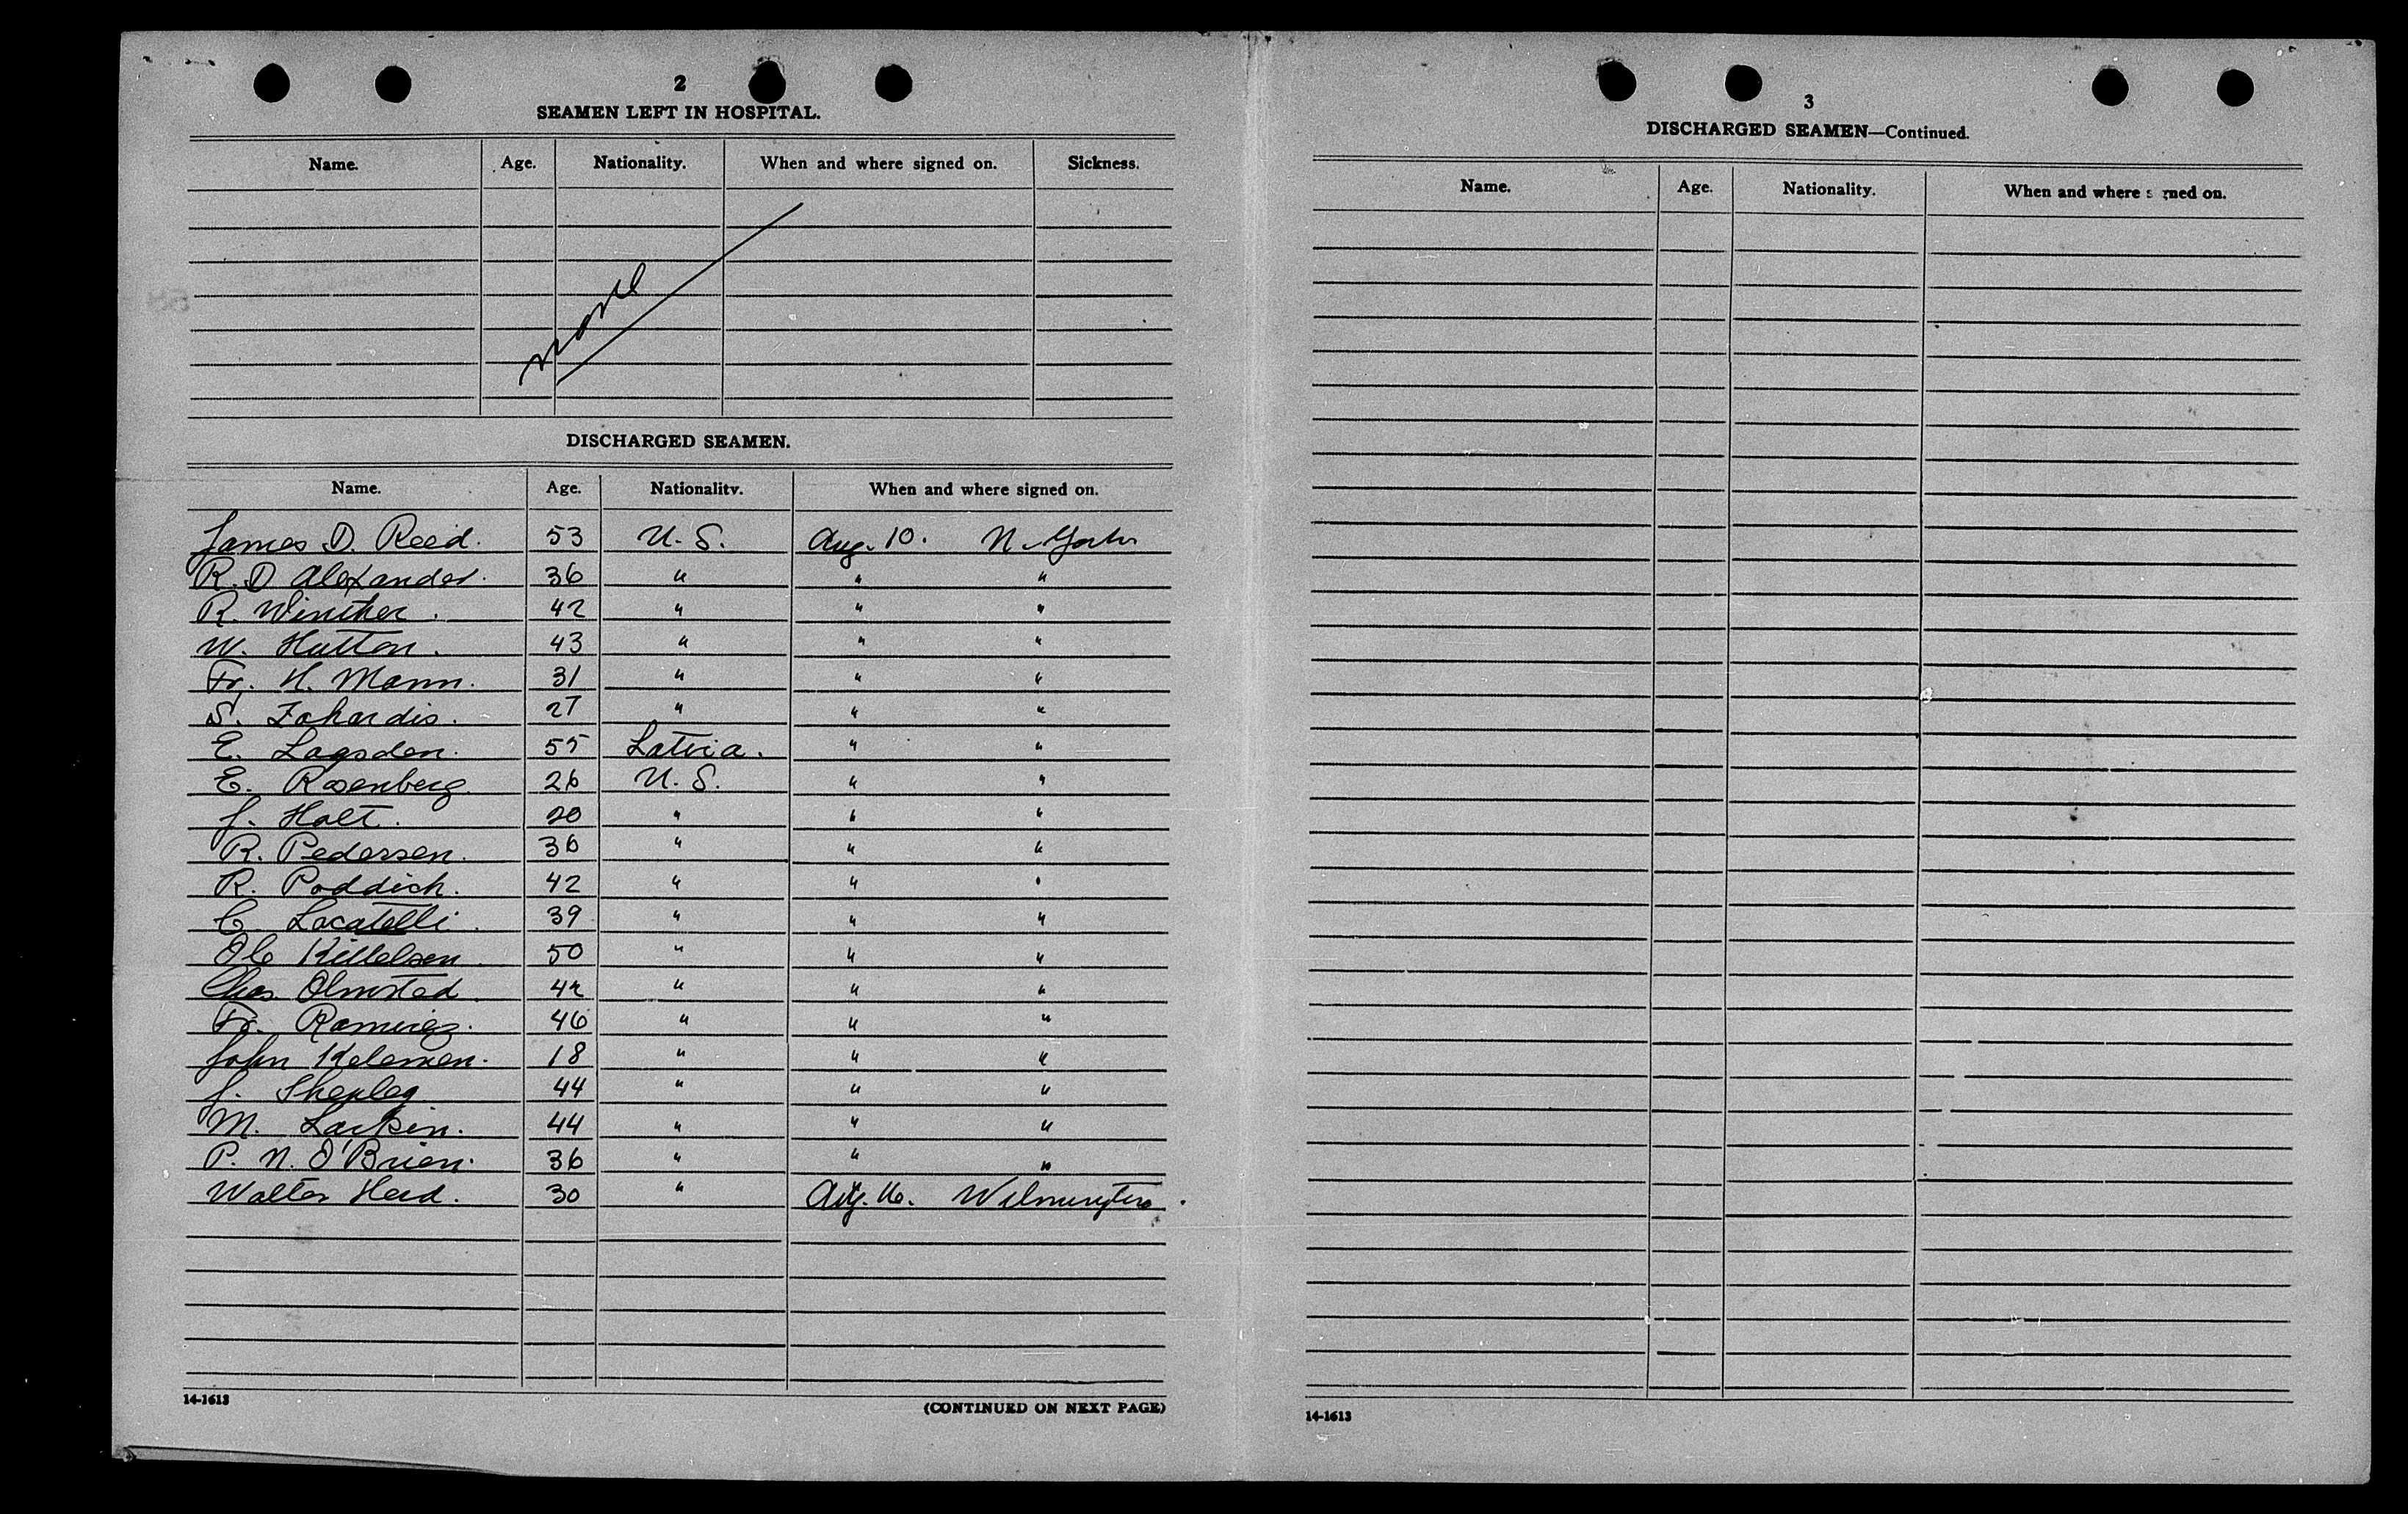 2
SEAMEN LEFT IN HOSPITAL.
Name. Age. Nationality. When and where signed on. Sickness.
none
DISCHARGED SEAMEN.
Name. Age. Nationality. When and where signed on.
James D. Reed. 53 U.S. Aug. 10. N. York
R. D Alexander. 36 " " "
R. Winther. 42 " " "
W. Hutton. 43 " " "
Fr. H. Mann. 31 " " "
S. Zahardis. 27 " " "
E. Lagsden. 55 Latvia. " "
E. Rosenberg 26 U.S. " "
J. Holt. 20 " " "
R. Pedersen. 36 " " "
R. Poddich. 42 " " "
C. Locatelli. 39 " " "
Ole Kittelsen. 50 " " "
Chas. Olmsted. 42 " " "
Fr. Ramirez. 46 " " "
John Kelemen. 18 " " "
J. 44 " " "
M. Larkin. 44 " " "
P. N. O'Brien. 36 " " "
Walter Herd. 30 " Aug. 16. Wilmington.
14-1613
(CONTINUED ON NEXT PAGE)
3
DISCHARGED SEAMEN—Continued.
Name. Age. Nationality. When and where signed on.
14-1613